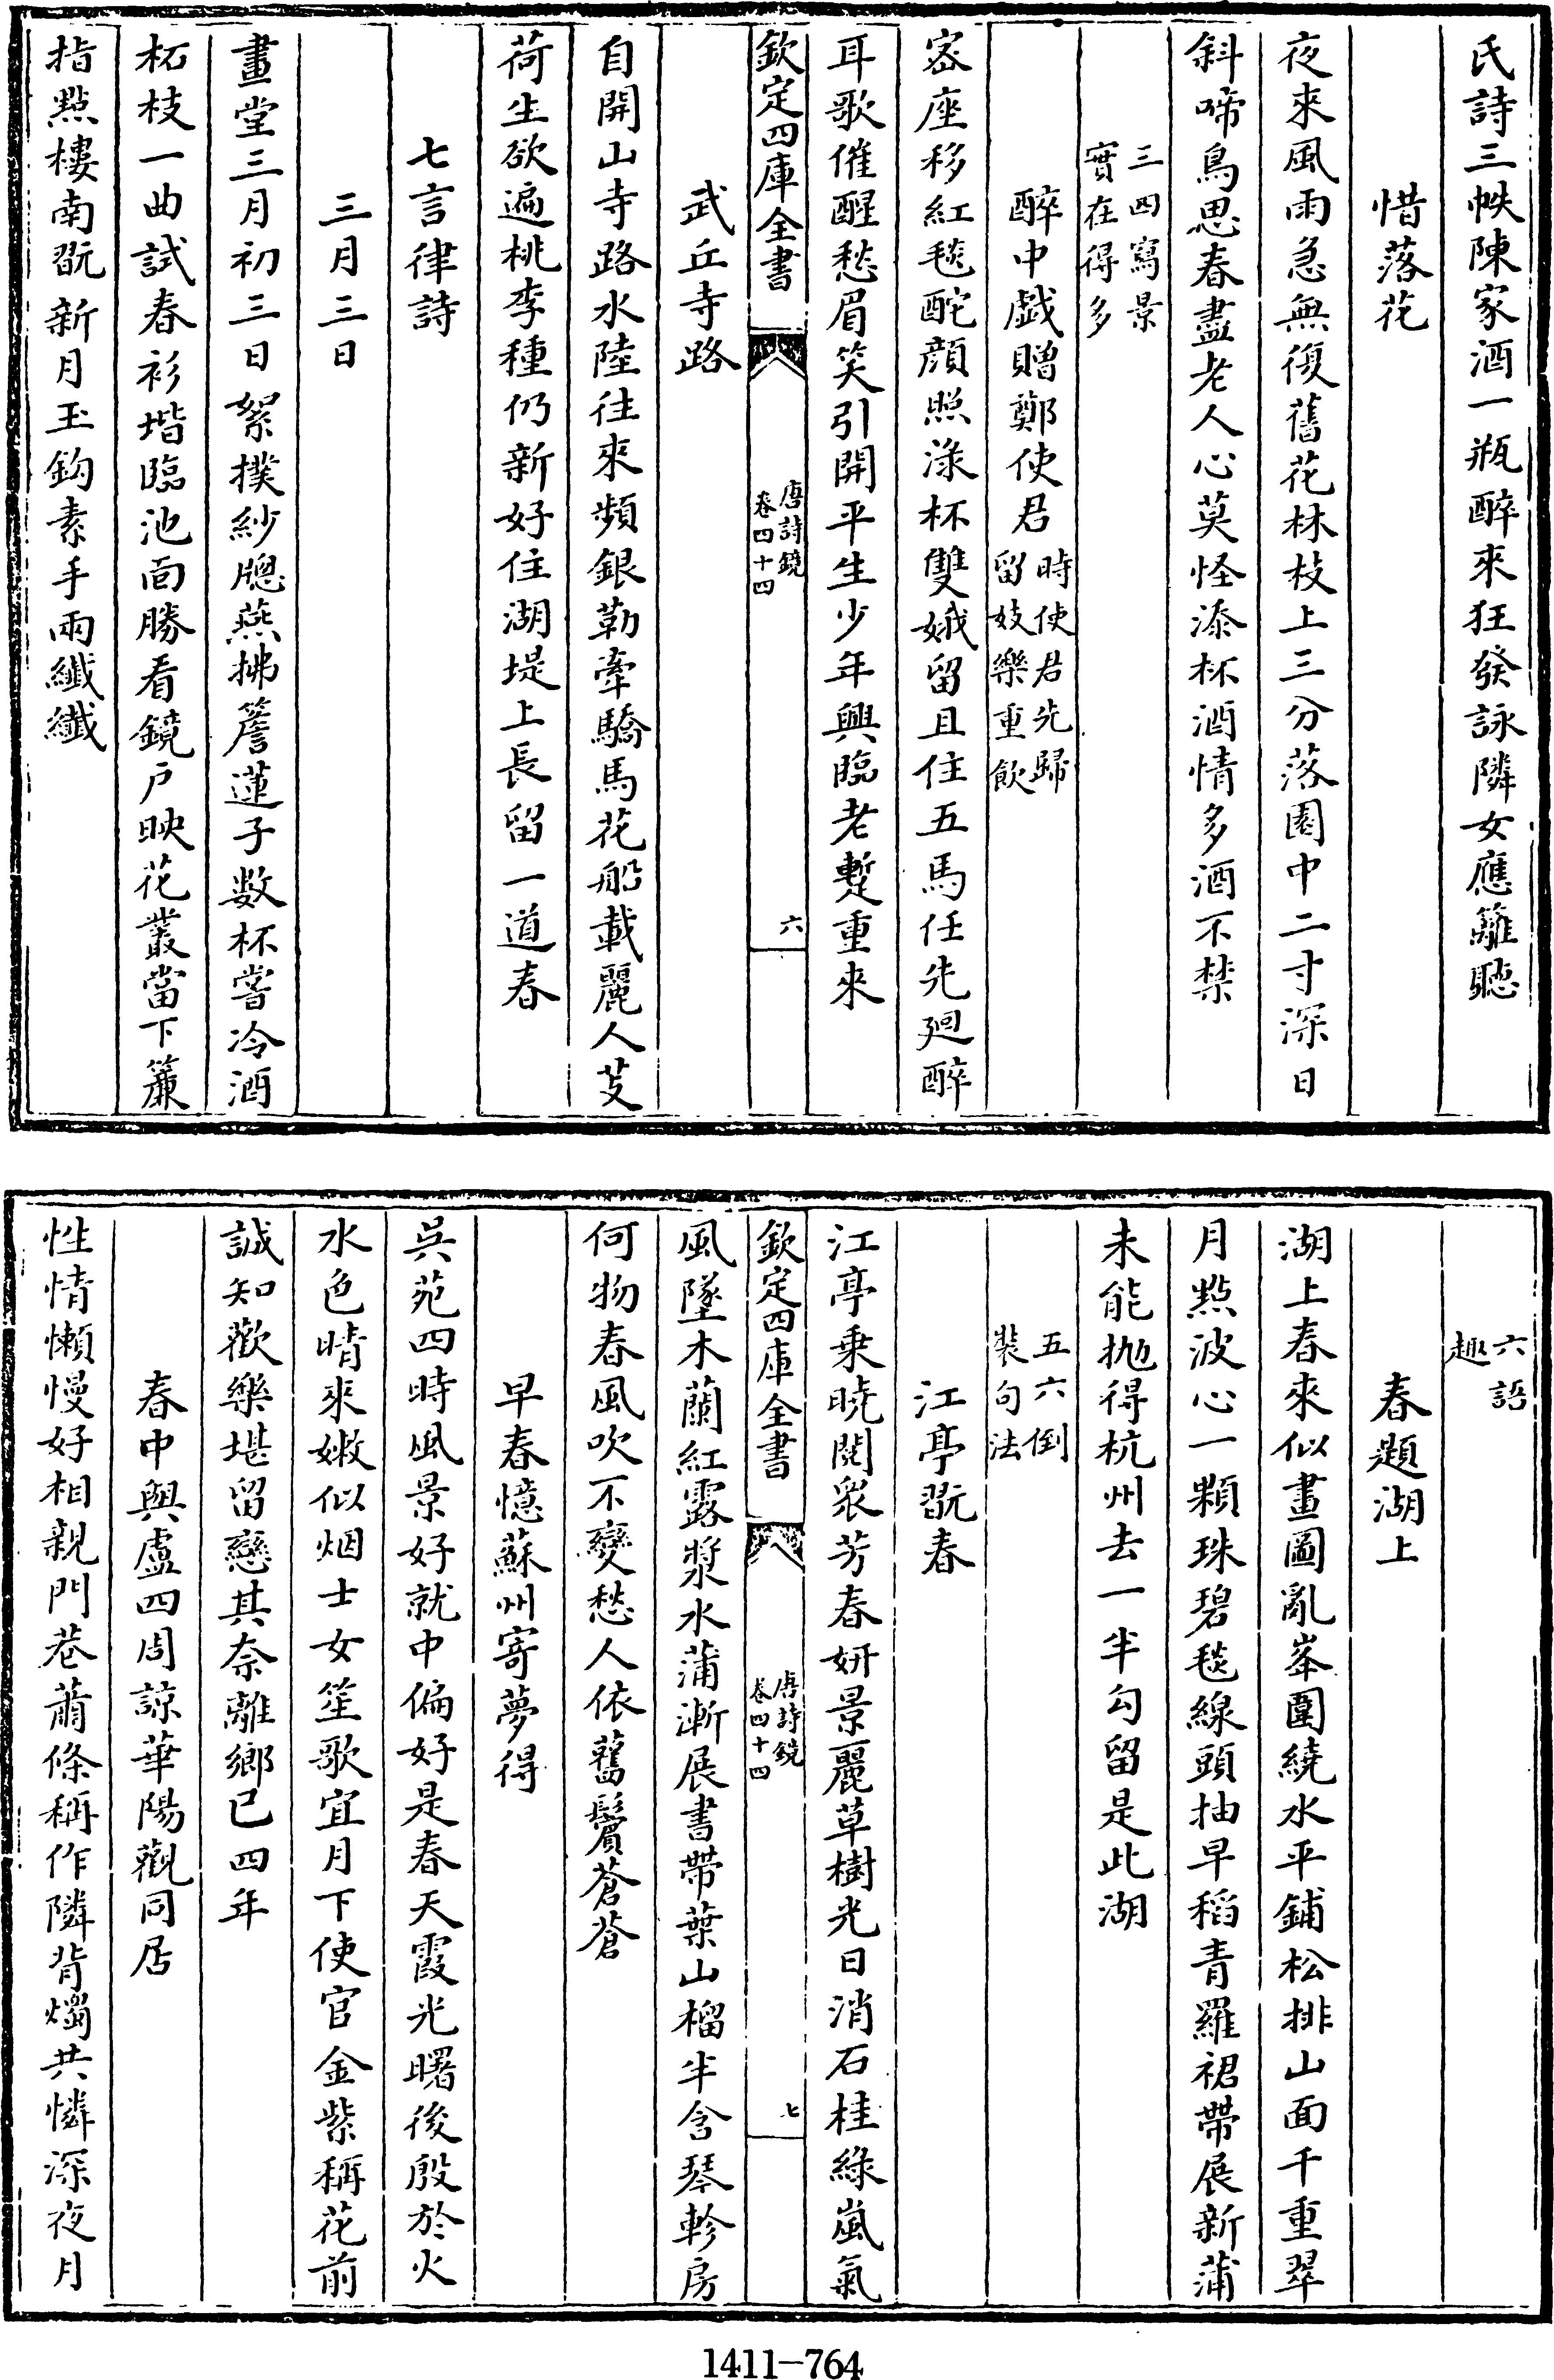 氏詩三帙陳家酒一瓶醉來狂發詠隣女應籬聽
惜落花
夜來風雨急無復舊花林枝上三分落園中二寸深日
斜啼鳥思春盡老人心莫怪添杯酒情多酒不禁
三四寫景
實在得多
醉中戯贈鄭使君時使君先歸
留妓樂重飲
密座移紅毯酡顔照渌杯雙娥留且住五馬任先廻醉
耳歌催醒愁眉笑引開平生少年興臨老蹔重來
欽定四庫全書
唐詩鏡
卷四十四
六
武丘寺路
自開山寺路水陸往來頻銀勒牽驕馬花船載麗人芰
荷生欲遍桃李種仍新好住湖堤上長留一道春
七言律詩
三月三日
畫堂三月初三日絮撲紗牕燕拂簷蓮子數杯嘗冷酒
柘枝一曲試春衫堦臨池面勝看鏡户映花叢當下簾
指點樓南翫新月玉鈎素手兩纖纖
六語
趣
春題湖上
湖上春來似畫圖亂峯圍繞水平鋪松排山面千重翠
月點波心一顆珠碧毯線頭抽早稻青羅裙帶展新蒲
未能抛得杭州去一半勾留是此湖
五六倒
裝句法
江亭翫春
江亭乗曉閱衆芳春妍景麗草樹光日消石桂綠嵐氣
欽定四庫全書
唐詩鏡
卷四十四
七
風墜木蘭紅露漿水蒲漸展書帶葉山榴半含琴軫房
何物春風吹不變愁人依舊鬢蒼蒼
早春憶蘇州寄夢得
吳苑四時風景好就中偏好是春天霞光曙後殷於火
水色晴來嫩似烟士女笙歌宜月下使官金紫稱花前
誠知歡樂堪留戀其奈離鄉已四年
春中與盧四周諒華陽觀同居
性情懶慢好相親門巷蕭條稱作隣背燭共憐深夜月
1411-764